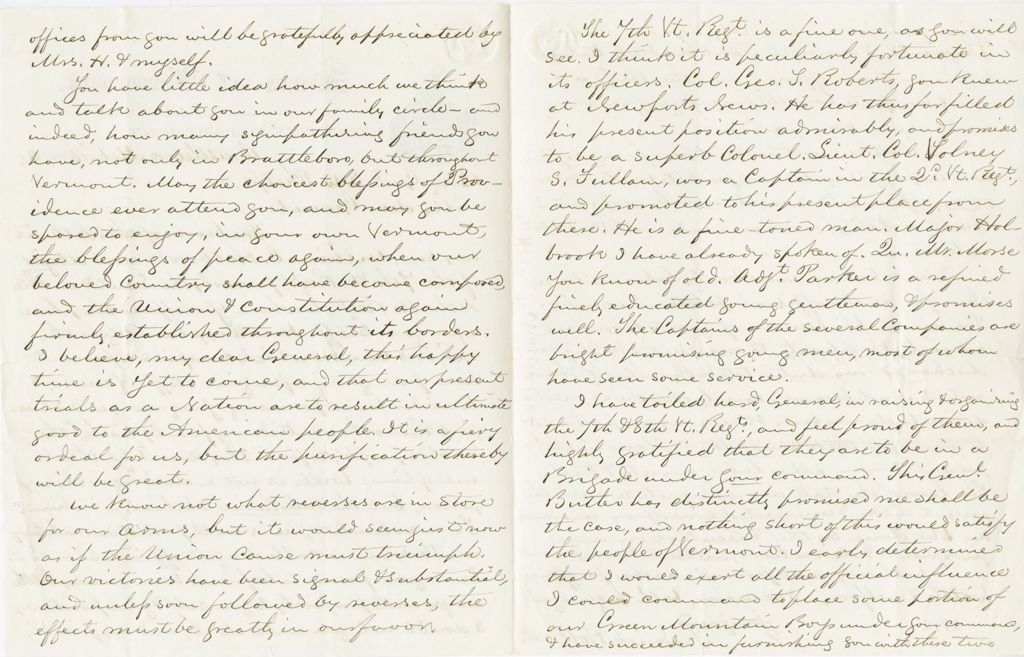 offices from you will be gratefully appreciated by
Mrs. H. & myself.
You have little idea how much we think
and talk about you in our family circle – and
indeed, how many sympathizing friends you
have, not only in Brattleboro, but throughout
Vermont. May the choicest blessings of Prov-
idence ever attend you, and may you be
spared to enjoy, in your own Vermont,
the blessings of peace again, when our
beloved Country shall have become composed,
and the Union & Constitution again
firmly established throughout its borders.
I believe, my dear General, this happy
time is yet to come, and that our present
trials as a Nation are to result in ultimate
good to the American people. It is a fiery
ordeal for us, but the purification thereby
will be great.
We know not what reverses are in store
for our arms, but it would seem just now
as if the Union Cause must triumph.
Our victories have been signal & substantial,
and unless soon followed by reverses, the
effects must be greatly in our favor.
The 7th Vt. Regt. is a fine one, as you will
see. I think it is peculiarly fortunate in
its officers. Col. Geo. T. Roberts, you knew
at Newport News. He has thus far filled
his present position admirably, and promises
to be a superb Colonel. Lieut. Col. Volney
S. Fullam, was a Captain in the 2d. Vt. Regt.,
and promoted to his present place from
there. He is a fine toned man. Major Hol-
brook I have already spoken of. Qu. Mr. Morse
you know of old. Adjt. Parker is a refined
finely educated young gentleman, & promises
well. The Captains of the several Companies are
bright promising young men, most of whom
have seen some service.
I have toiled hard General, in raising & organizing
the 7th & 8th Vt. Regts., and feel proud of them, and
highly gratified that they are to be in a
Brigade under your command. This Genl.
Butler has distinctly promised me shall be
the case, and nothing short of this would satisfy
the people of Vermont. I early determined
that I would exert all the official influence
I could command to place some portion of
our Green Mountain Boys under your command,
& have succeeded in furnishing you with these two